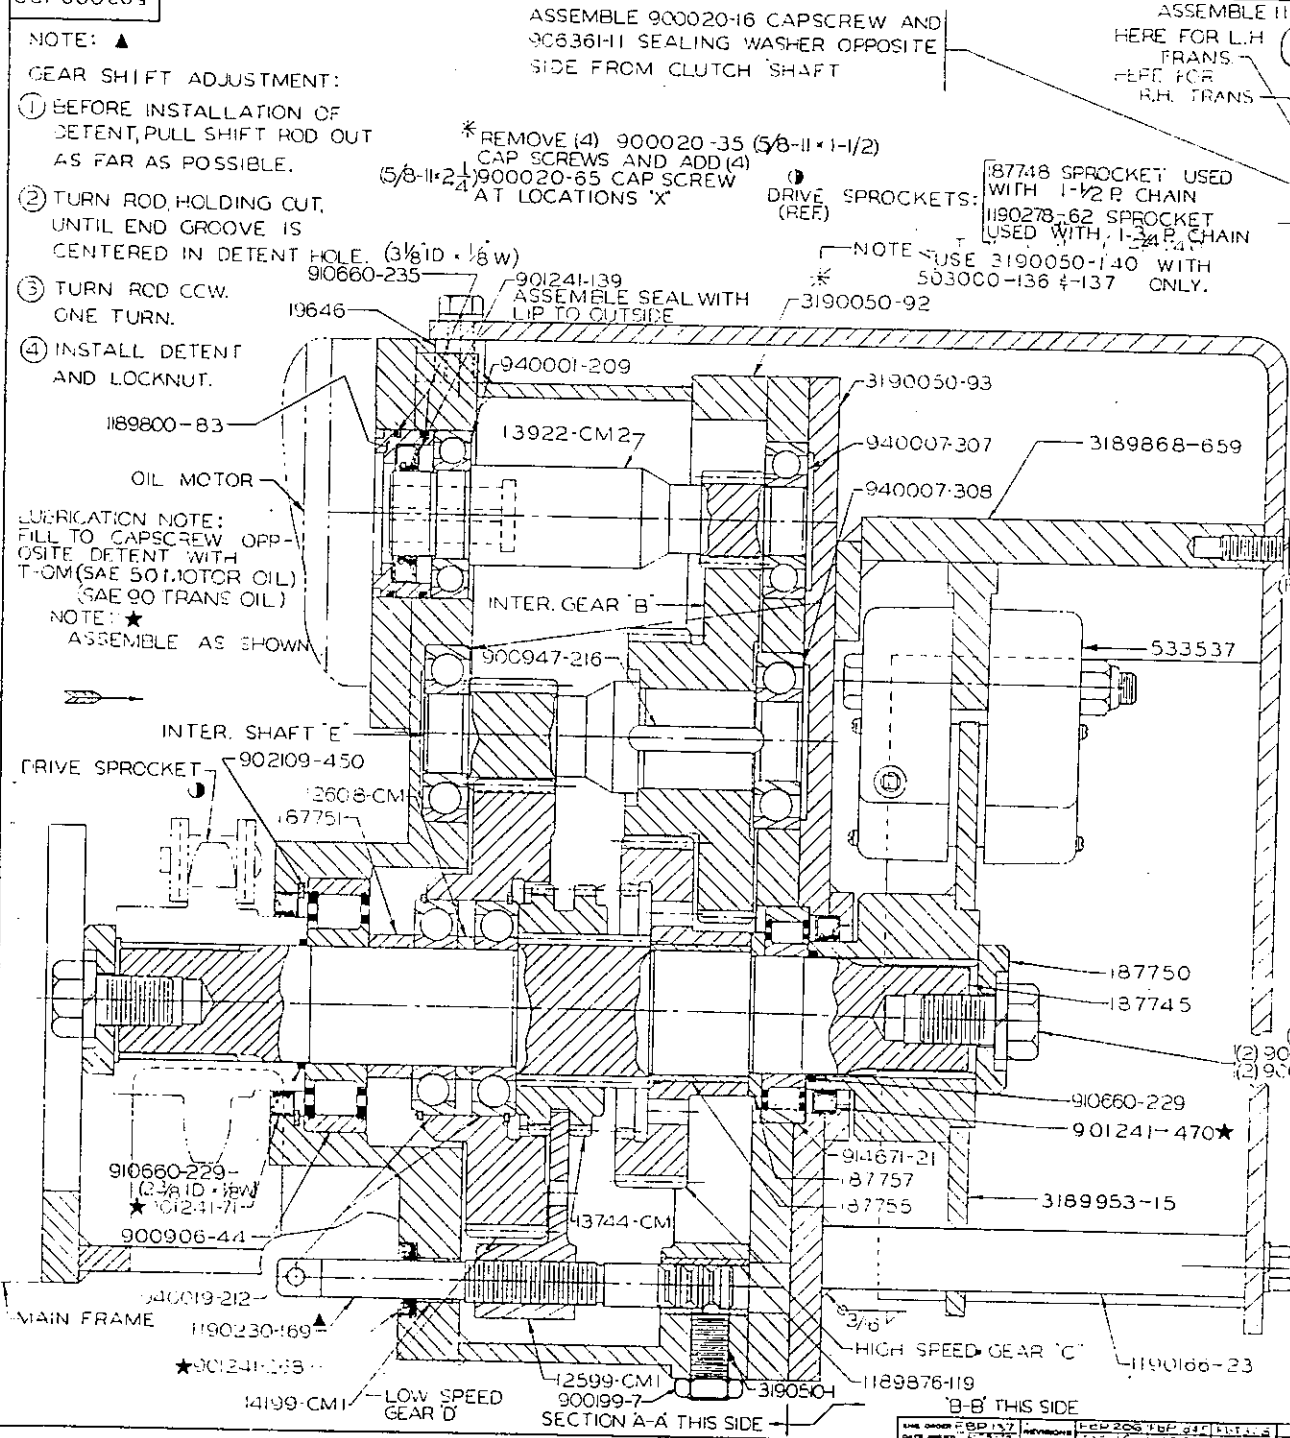 NOTE: ▲
GEAR SHIFT ADJUSTMENT:
① BEFORE INSTALLATION OF
DETENT, PULL SHIFT ROD OUT
AS FAR AS POSSIBLE.
② TURN ROD, HOLDING OUT,
UNTIL END GROOVE IS
CENTERED IN DETENT HOLE.
③ TURN ROD CCW.
ONE TURN.
④ INSTALL DETENT
AND LOCKNUT.
ASSEMBLE 900020-16 CAPSCREW AND
906361-11 SEALING WASHER OPPOSITE
SIDE FROM CLUTCH SHAFT
ASSEMBLE
HERE FOR L.H
TRANS.
HERE FOR
R.H. TRANS
* REMOVE (4) 900020-35 (5/8-11 x 1-1/2)
CAP SCREWS AND ADD (4)
(5/8-11x2¼) 900020-65 CAP SCREW
AT LOCATIONS "X"
DRIVE SPROCKETS:
(REF.)
187748 SPROCKET USED
WITH 1-1/2 P. CHAIN
1190278-62 SPROCKET
USED WITH 1-3/4 P. CHAIN
NOTE
USE 3190050-140 WITH
503000-136 & -137 ONLY.
*
(3⅛ ID x ⅛ W)
910660-235
901241-139
ASSEMBLE SEAL WITH
LIP TO OUTSIDE
3190050-92
19646
940001-209
3190050-93
1189800-83
13922-CM2
940007-307
3189868-659
OIL MOTOR
940007-308
LUBRICATION NOTE:
FILL TO CAPSCREW OPP-
OSITE DETENT WITH
T-OM (SAE 50 MOTOR OIL)
(SAE 90 TRANS OIL)
NOTE: ★
ASSEMBLE AS SHOWN
INTER. GEAR "B"
900947-216
533537
INTER. SHAFT "E"
902109-450
DRIVE SPROCKET
12608-CM
187751
187750
187745
(2) 90
(2) 90
910660-229
901241-470★
914671-21
187757
187755
3189953-15
910660-229
★901241-71
900906-44
13744-CM
940019-212
MAIN FRAME
1190230-169▲
3/16
HIGH SPEED GEAR "C"
1190166-23
14199-CM1
LOW SPEED
GEAR "D"
12599-CM1
900199-7
319050-1
1189876-119
SECTION "A-A" THIS SIDE
"B-B" THIS SIDE
REVISIONS